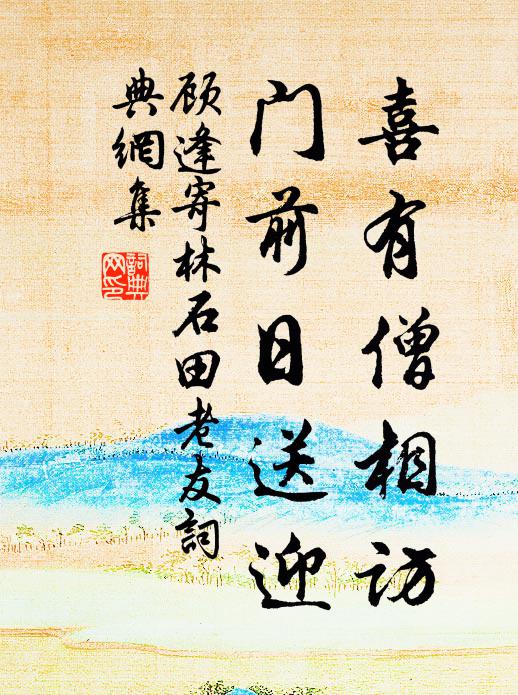 喜有僧相访
门前日送迎
顾逢寄林石田老友詞
典網集
詞典网印